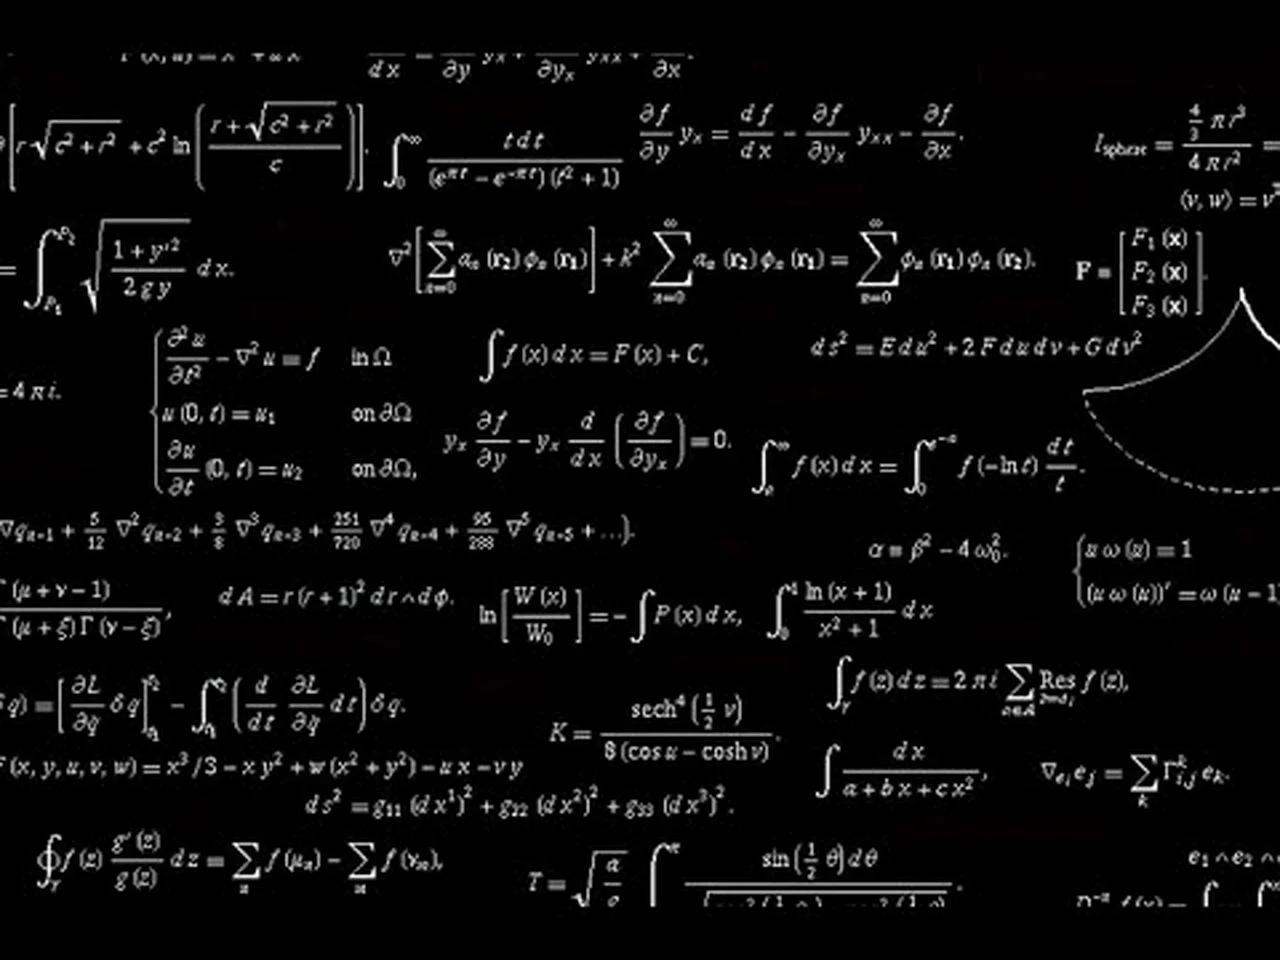 \frac{}{dx} = \frac{}{\partial y} y_x + \frac{}{\partial y_x} y_{xx} + \frac{}{\partial x}.
\left[ r\sqrt{c^2+r^2} + c^2 \ln\left(\frac{r+\sqrt{c^2+r^2}}{c}\right)\right].
\int_0^\infty \frac{t\,dt}{(e^{\pi t} - e^{-\pi t})(t^2+1)}
\frac{\partial f}{\partial y} y_x = \frac{df}{dx} - \frac{\partial f}{\partial y_x} y_{xx} - \frac{\partial f}{\partial x}.
l_{sphere} = \frac{\frac{4}{3}\pi r^3}{4\pi r^2} =
⟨v, w⟩ = v
= \int_{P_1}^{P_2} \sqrt{\frac{1+y'^2}{2gy}} dx.
\nabla^2\left[\sum_{n=0}^\infty a_n(r_2)\phi_n(r_1)\right] + k^2 \sum_{n=0}^\infty a_n(r_2)\phi_n(r_1) = \sum_{n=0}^\infty \phi_n(r_1)\phi_n(r_2).
F ≡ \begin{bmatrix} F_1(x) \\ F_2(x) \\ F_3(x) \end{bmatrix}.
= 4πi.
\frac{\partial^2 u}{\partial t^2} - \nabla^2 u = f in Ω
u(0, t) = u_1 on ∂Ω
\frac{\partial u}{\partial t}(0, t) = u_2 on ∂Ω,
\int f(x) dx = F(x) + C,
ds^2 = E du^2 + 2F du dv + G dv^2
y_x \frac{\partial f}{\partial y} - y_x \frac{d}{dx}\left(\frac{\partial f}{\partial y_x}\right) = 0.
\int_a^\infty f(x) dx = \int_0^{e^{-a}} f(-\ln t) \frac{dt}{t}.
\nabla q_{n-1} + \frac{5}{12}\nabla^2 q_{n-2} + \frac{3}{8}\nabla^3 q_{n-3} + \frac{251}{720}\nabla^4 q_{n-4} + \frac{95}{288}\nabla^5 q_{n-5} + ...).
α ≡ β^2 - 4ω_0^2.
u ω(u) = 1
(u ω(u))' = ω(u - 1
\frac{Γ(μ+ν-1)}{Γ(μ+ξ)Γ(ν-ξ)},
dA = r(r+1)^2 dr ∧ dϕ.
\ln\left[\frac{W(x)}{W_0}\right] = -\int P(x) dx,
\int_0^1 \frac{\ln(x+1)}{x^2+1} dx
q) = \left[\frac{\partial L}{\partial \dot q} δq\right]_{t_1}^{t_2} - \int_{t_1}^{t_2}\left(\frac{d}{dt}\frac{\partial L}{\partial \dot q} dt\right) δq.
K = \frac{sech^4(\frac{1}{2} v)}{8(\cos u - \cosh v)}.
\int_γ f(z) dz = 2πi \sum_{a∈A} Res_{z=a_i} f(z),
F(x, y, u, v, w) = x^3/3 - x y^2 + w(x^2+y^2) - u x - v y
\int \frac{dx}{a+bx+cx^2},
\nabla_{e_i} e_j = \sum_k Γ_{i,j}^k e_k.
ds^2 = g_{11}(dx^1)^2 + g_{22}(dx^2)^2 + g_{33}(dx^3)^2.
\oint_γ f(z) \frac{g'(z)}{g(z)} dz = \sum_n f(μ_n) - \sum_m f(ν_m),
T = \sqrt{\frac{a}{g}} \int^π \frac{\sin(\frac{1}{2}θ) dθ}{}.
e_1 ∧ e_2 ∧